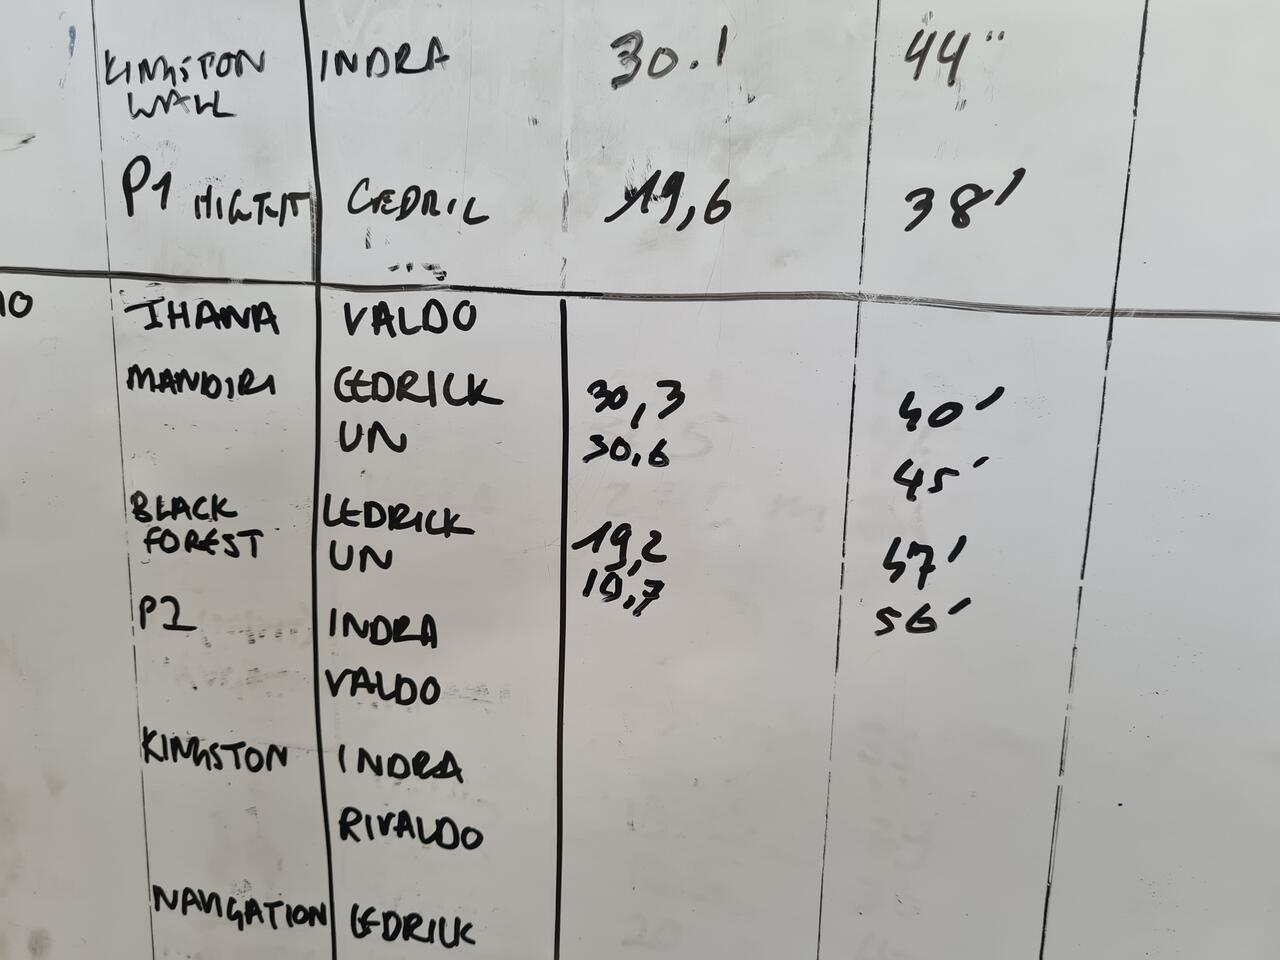 KINGSTON INDRA 30.1 44"
WALL
P1 CEDRIC 19,6 38'
10 JHANA VALDO
MANDIRI CEDRICK 30,3 40'
UN 30,6 45'
BLACK CEDRICK 19,2 47'
FOREST UN 10,7 56'
P2 INDRA
VALDO
KINGSTON INDRA
RIVALDO
NAVIGATION CEDRICK